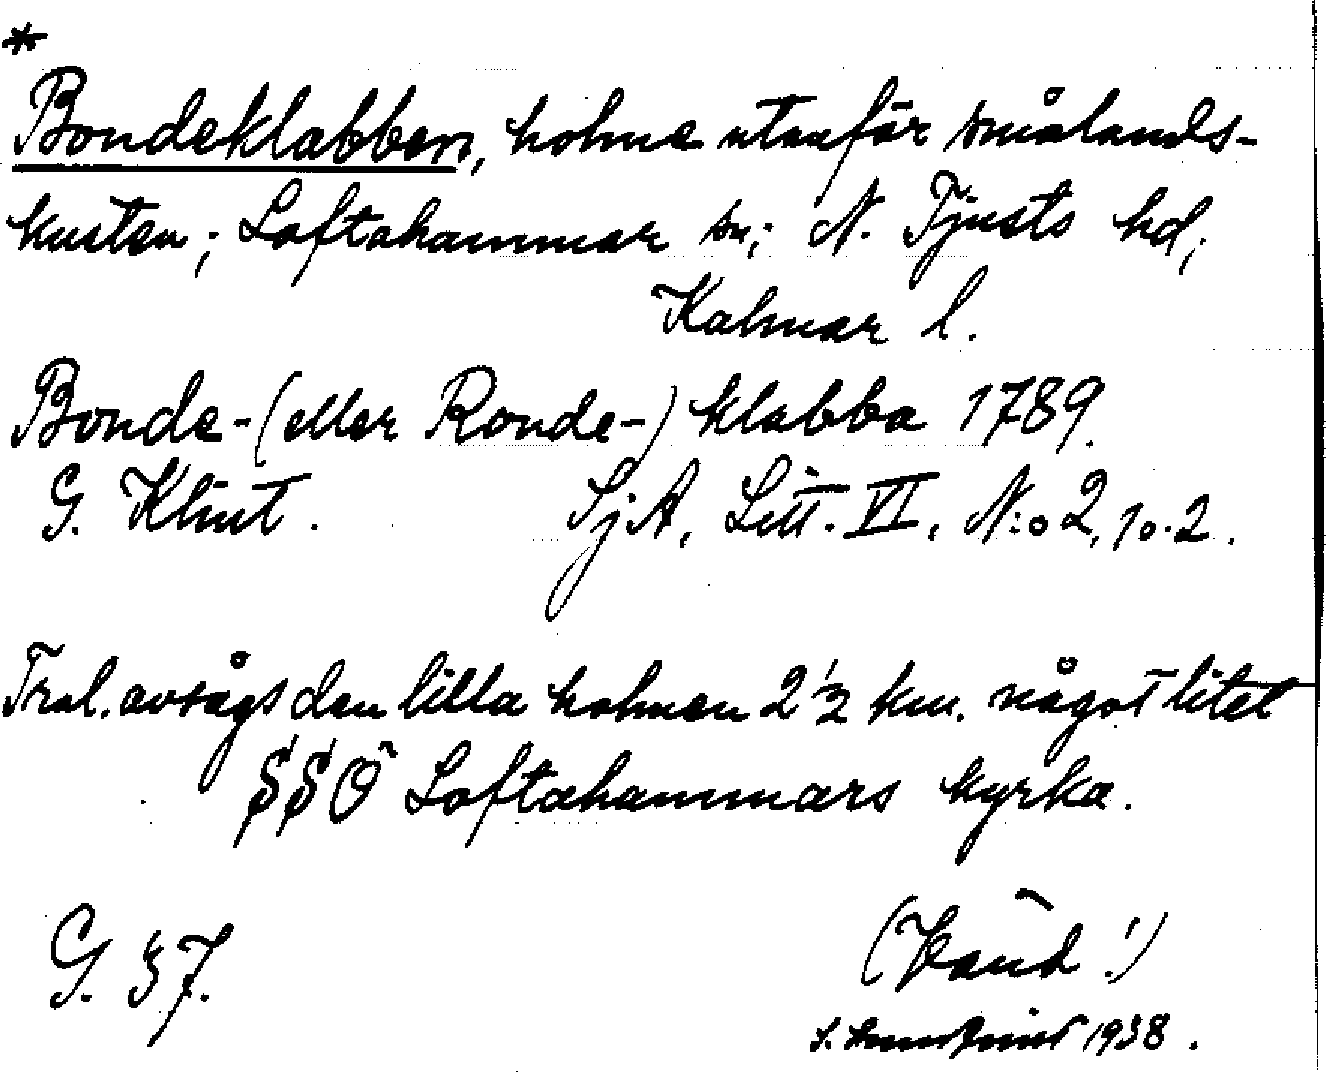 *
Bondeklabben, holme utanför smålands-
kusten; Loftahammar sn; N. Tjusts hd;
Kalmar l.
Bonde-(eller Ronde-) klabba 1789.
G. Klint. SjA, Litt. VI, N:o 2, 10.2.
Trol. avsågs den lilla holmen 2 1/2 km. något litet
SSÖ Loftahammars kyrka.
G. 37.
( !)
S. 1938.